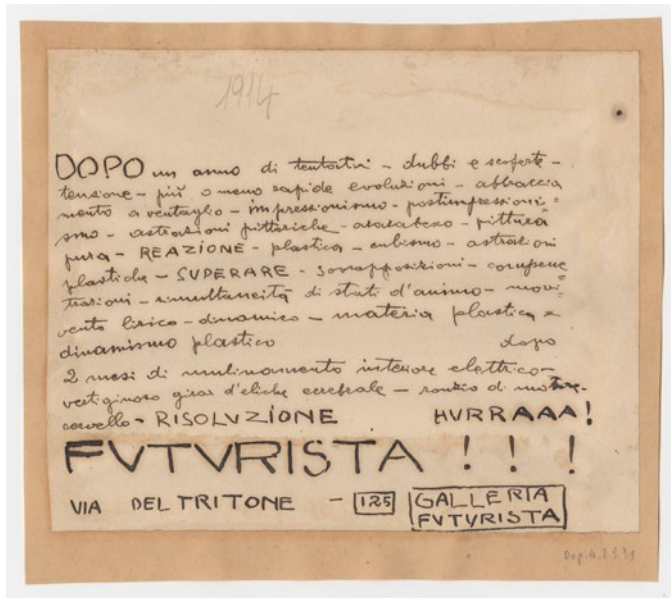 1914
DOPO un anno di tentativi - dubbi e scoperte -
tensione - più o meno rapide evoluzioni - abbraccia
mento a ventaglio - impressionismo - postimpressioni=
smo - astrazioni pittoriche - - pittura
pura - REAZIONE - plastica - cubismo - astrazioni
plastiche - SUPERARE - sovrapposizioni - compene
trazioni - simultaneità di stati d'animo - movi=
mento lirico - dinamico - materia plastica =
dinamismo plastico dopo
2 mesi di mulinamento interiore elettrico -
vertiginoso girar d'eliche cerebrale - ronzio di motore-
cervello - RISOLVZIONE HVRRAAA!
FVTVRISTA ! ! !
VIA DEL TRITONE - 125 GALLERIA
FVTVRISTA
Dep.4.2.3.31